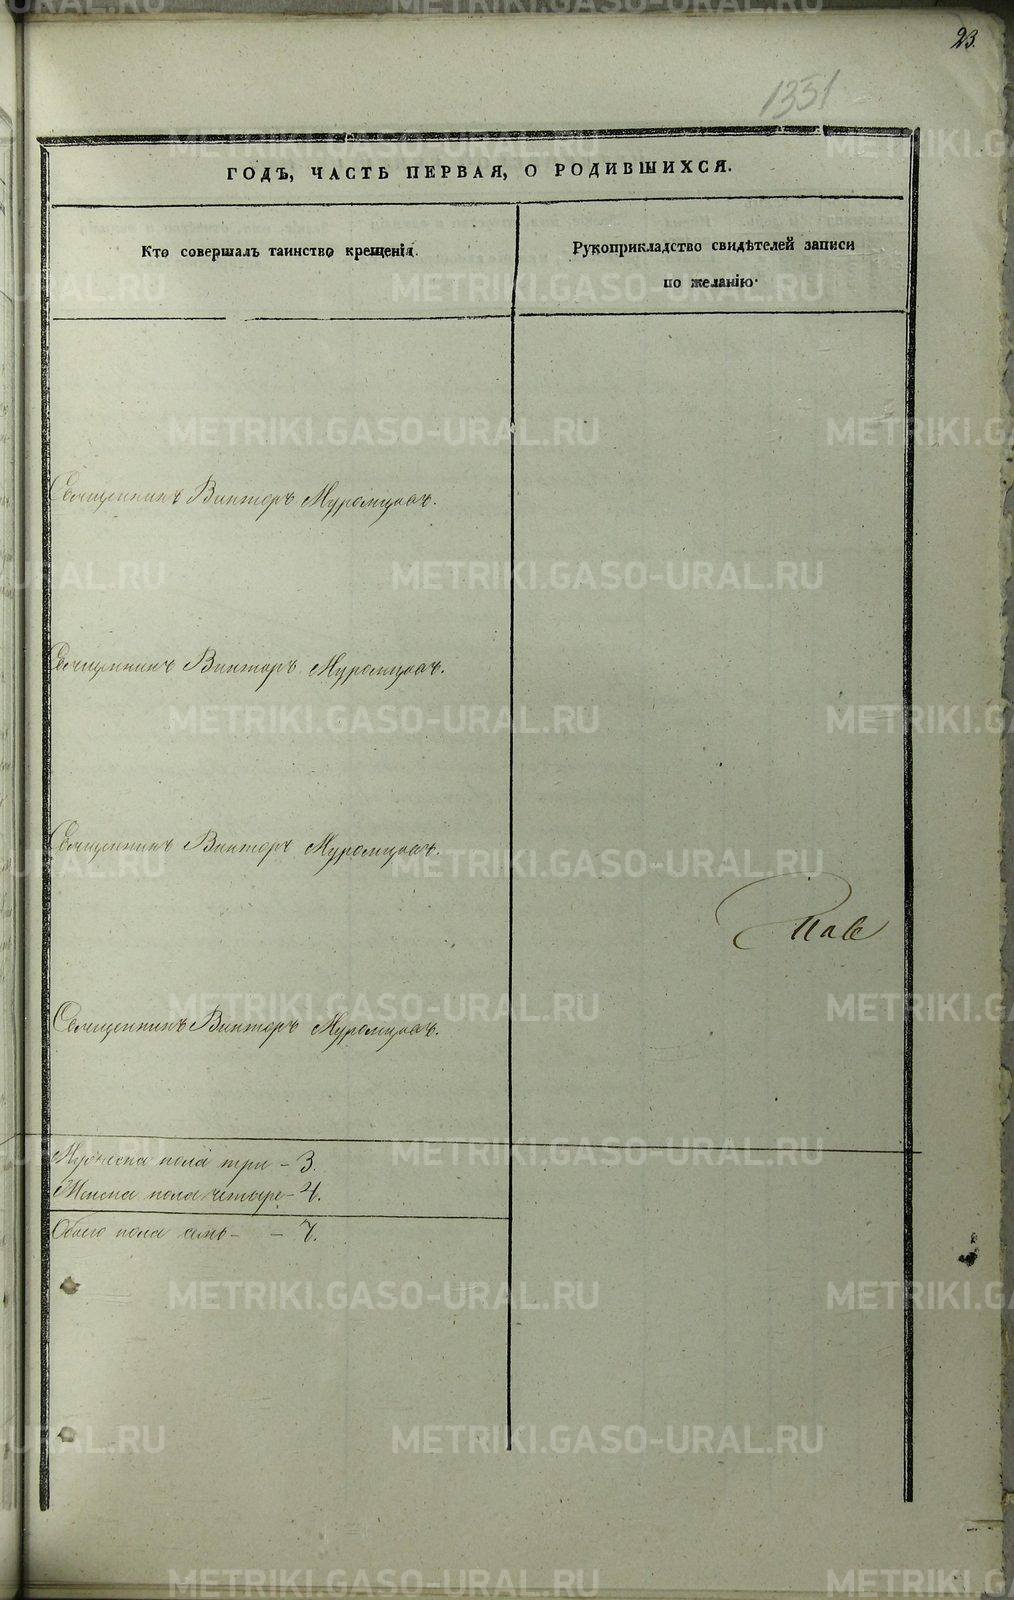 23.
1351
ГОДЪ, ЧАСТЬ ПЕРВАЯ, О РОДИВШИХСЯ.
Кто совершалъ таинство крещенія.
Рукоприкладство свидѣтелей записи
по желанію.
Священникъ Викторъ Муромцовъ.
Священникъ Викторъ Муромцовъ.
Священникъ Викторъ Муромцовъ.
Священникъ Викторъ Муромцовъ.
Мужеска пола три - 3.
Женска пола четыре - 4.
Обоего пола семь - - 7.
METRIKI.GASO-URAL.RU